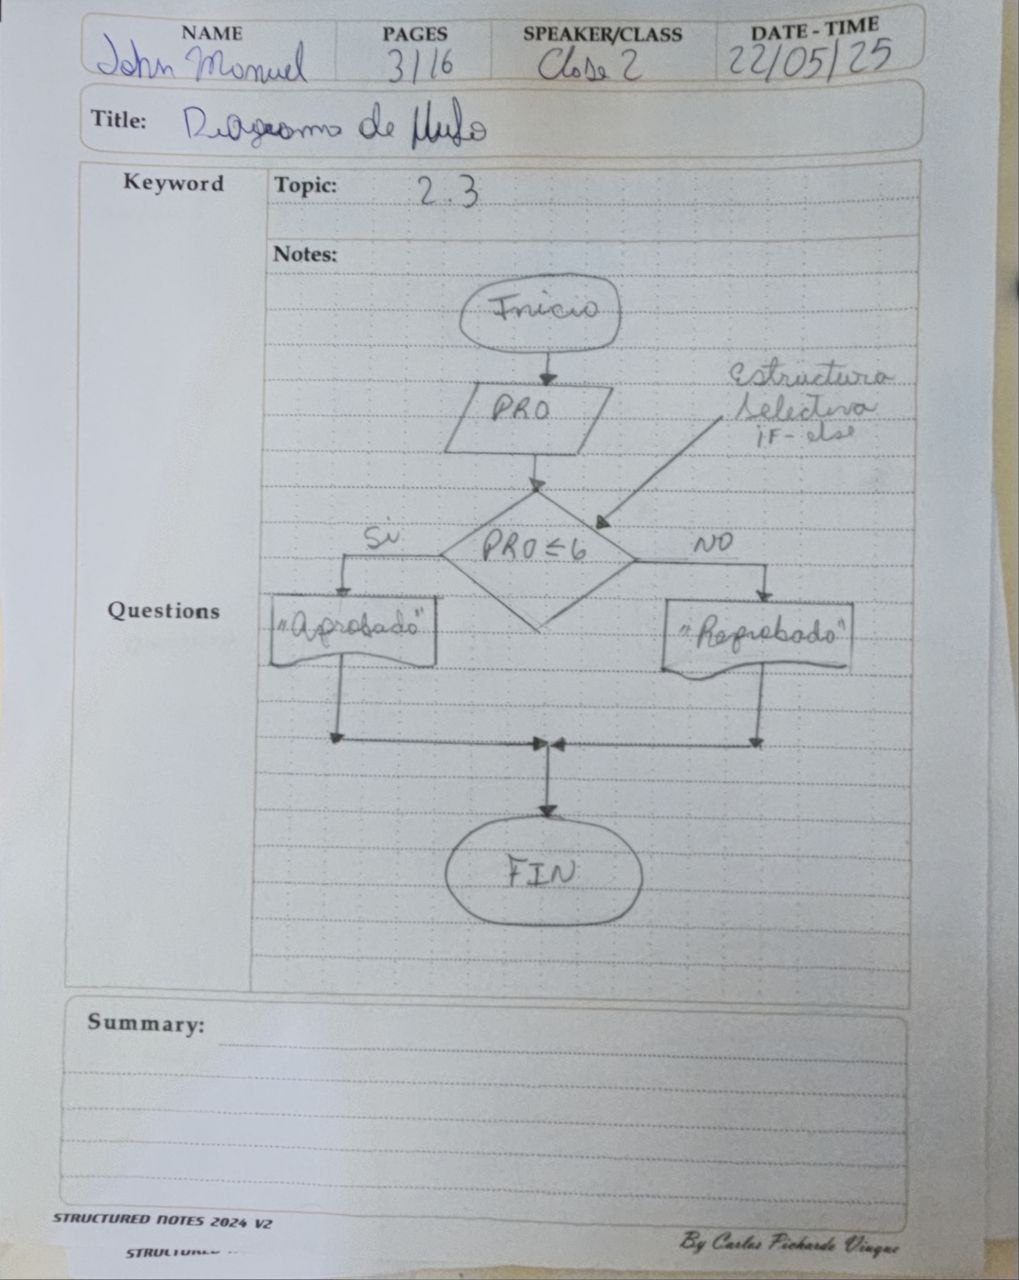 NAME PAGES SPEAKER/CLASS DATE - TIME
John Manuel 3/16 Clase 2 22/05/25
Title: Diagrama de flujo
Keyword
Topic: 2.3
Notes:
Inicio
Estructura
Selectiva
IF- else
PRO
Si PRO ≤ 6 NO
Questions
"Aprobado" "Reprobado"
FIN
Summary:
STRUCTURED NOTES 2024 V2
By Carlos Pichardo Viuque